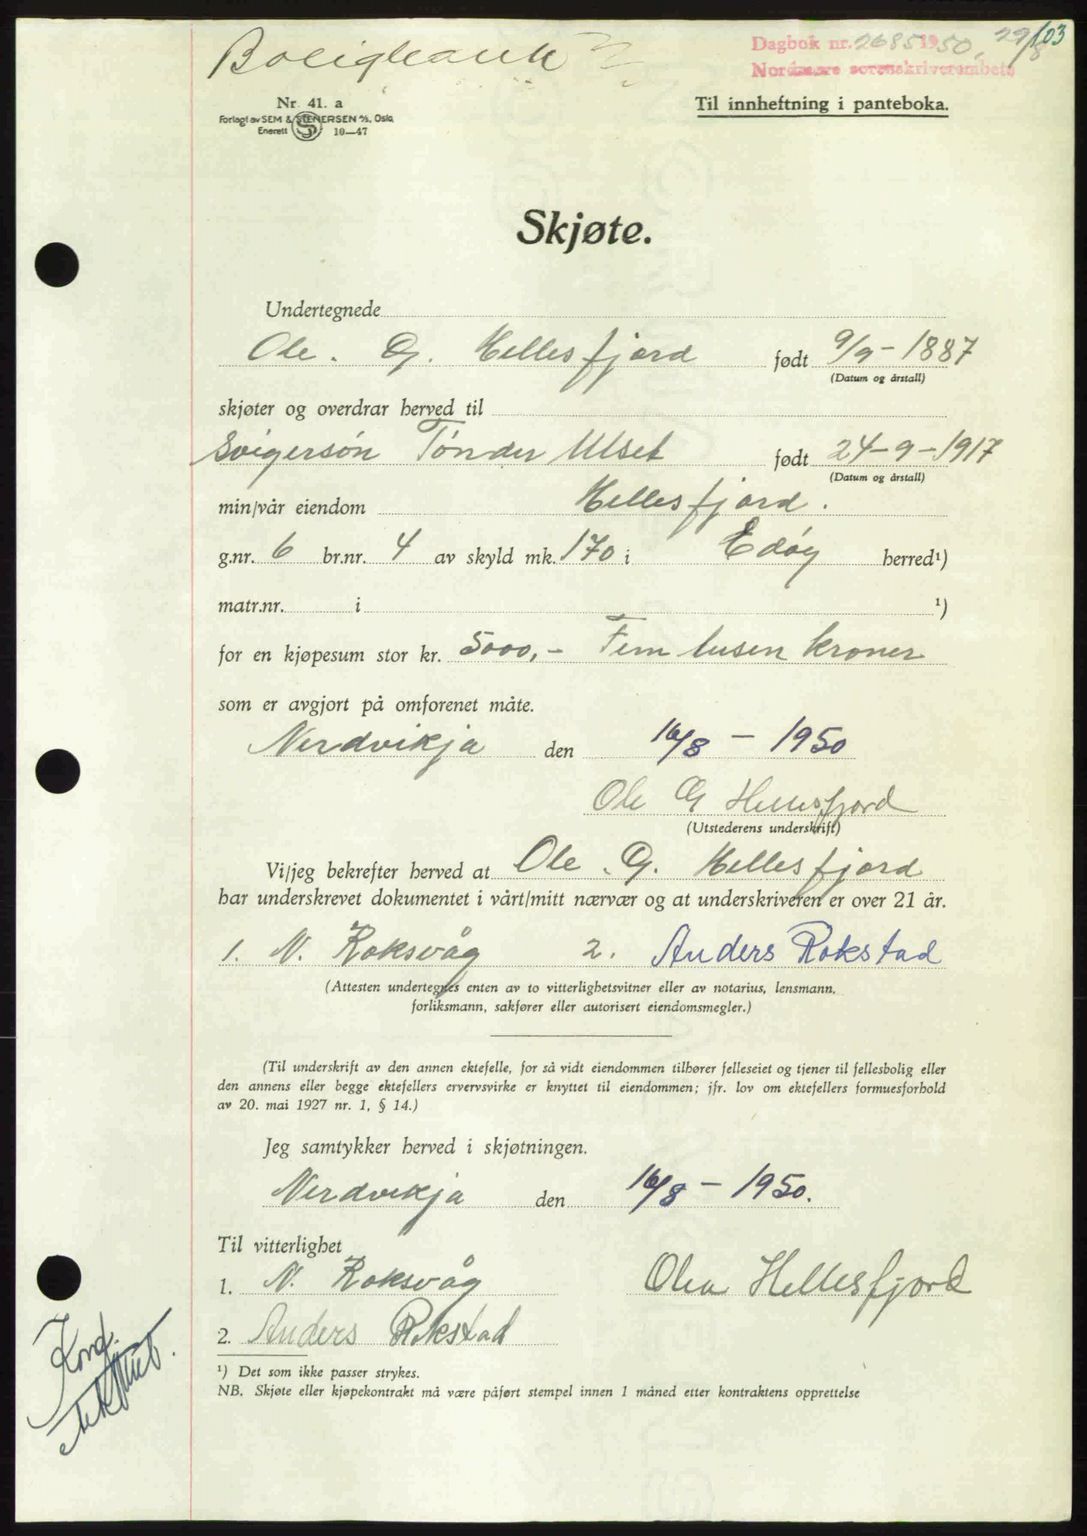 Boligbank
Dagbok nr. 2685 1950, 29/8 103
Nordmøre sorenskriverembete
Nr. 41. a
Forlagt av SEM & STENERSEN A/S, Oslo
Enerett S 10—47
Til innheftning i panteboka.
Skjøte.
Undertegnede
Ole. G. Hellesfjord født 9/9-1887
(Datum og årstall)
skjøter og overdrar herved til
Svigersøn Tønder Ulset født 24-9-1917
(Datum og årstall)
min/vår eiendom Hellesfjord.
g.nr. 6 br.nr. 4 av skyld mk. 170 i Edøy herred¹)
matr.nr. i ¹)
for en kjøpesum stor kr. 5000,- Fem tusen kroner
som er avgjort på omforenet måte.
Nerdvikja den 16/8 - 1950
Ole G Hellesfjord
(Utstederens underskrift)
Vi/jeg bekrefter herved at Ole. G. Hellesfjord
har underskrevet dokumentet i vårt/mitt nærvær og at underskriveren er over 21 år.
1. N. Roksvåg 2. Anders Rokstad
(Attesten undertegnes enten av to vitterlighetsvitner eller av notarius, lensmann,
forliksmann, sakfører eller autorisert eiendomsmegler.)
(Til underskrift av den annen ektefelle, for så vidt eiendommen tilhører felleseiet og tjener til fellesbolig eller
den annens eller begge ektefellers ervervsvirke er knyttet til eiendommen; jfr. lov om ektefellers formuesforhold
av 20. mai 1927 nr. 1, § 14.)
Jeg samtykker herved i skjøtningen.
Nerdvikja den 16/8 - 1950.
Til vitterlighet
1. N. Roksvåg Olea Hellesfjord
2. Anders Rokstad
Kond.
¹) Det som ikke passer strykes.
NB. Skjøte eller kjøpekontrakt må være påført stempel innen 1 måned etter kontraktens opprettelse